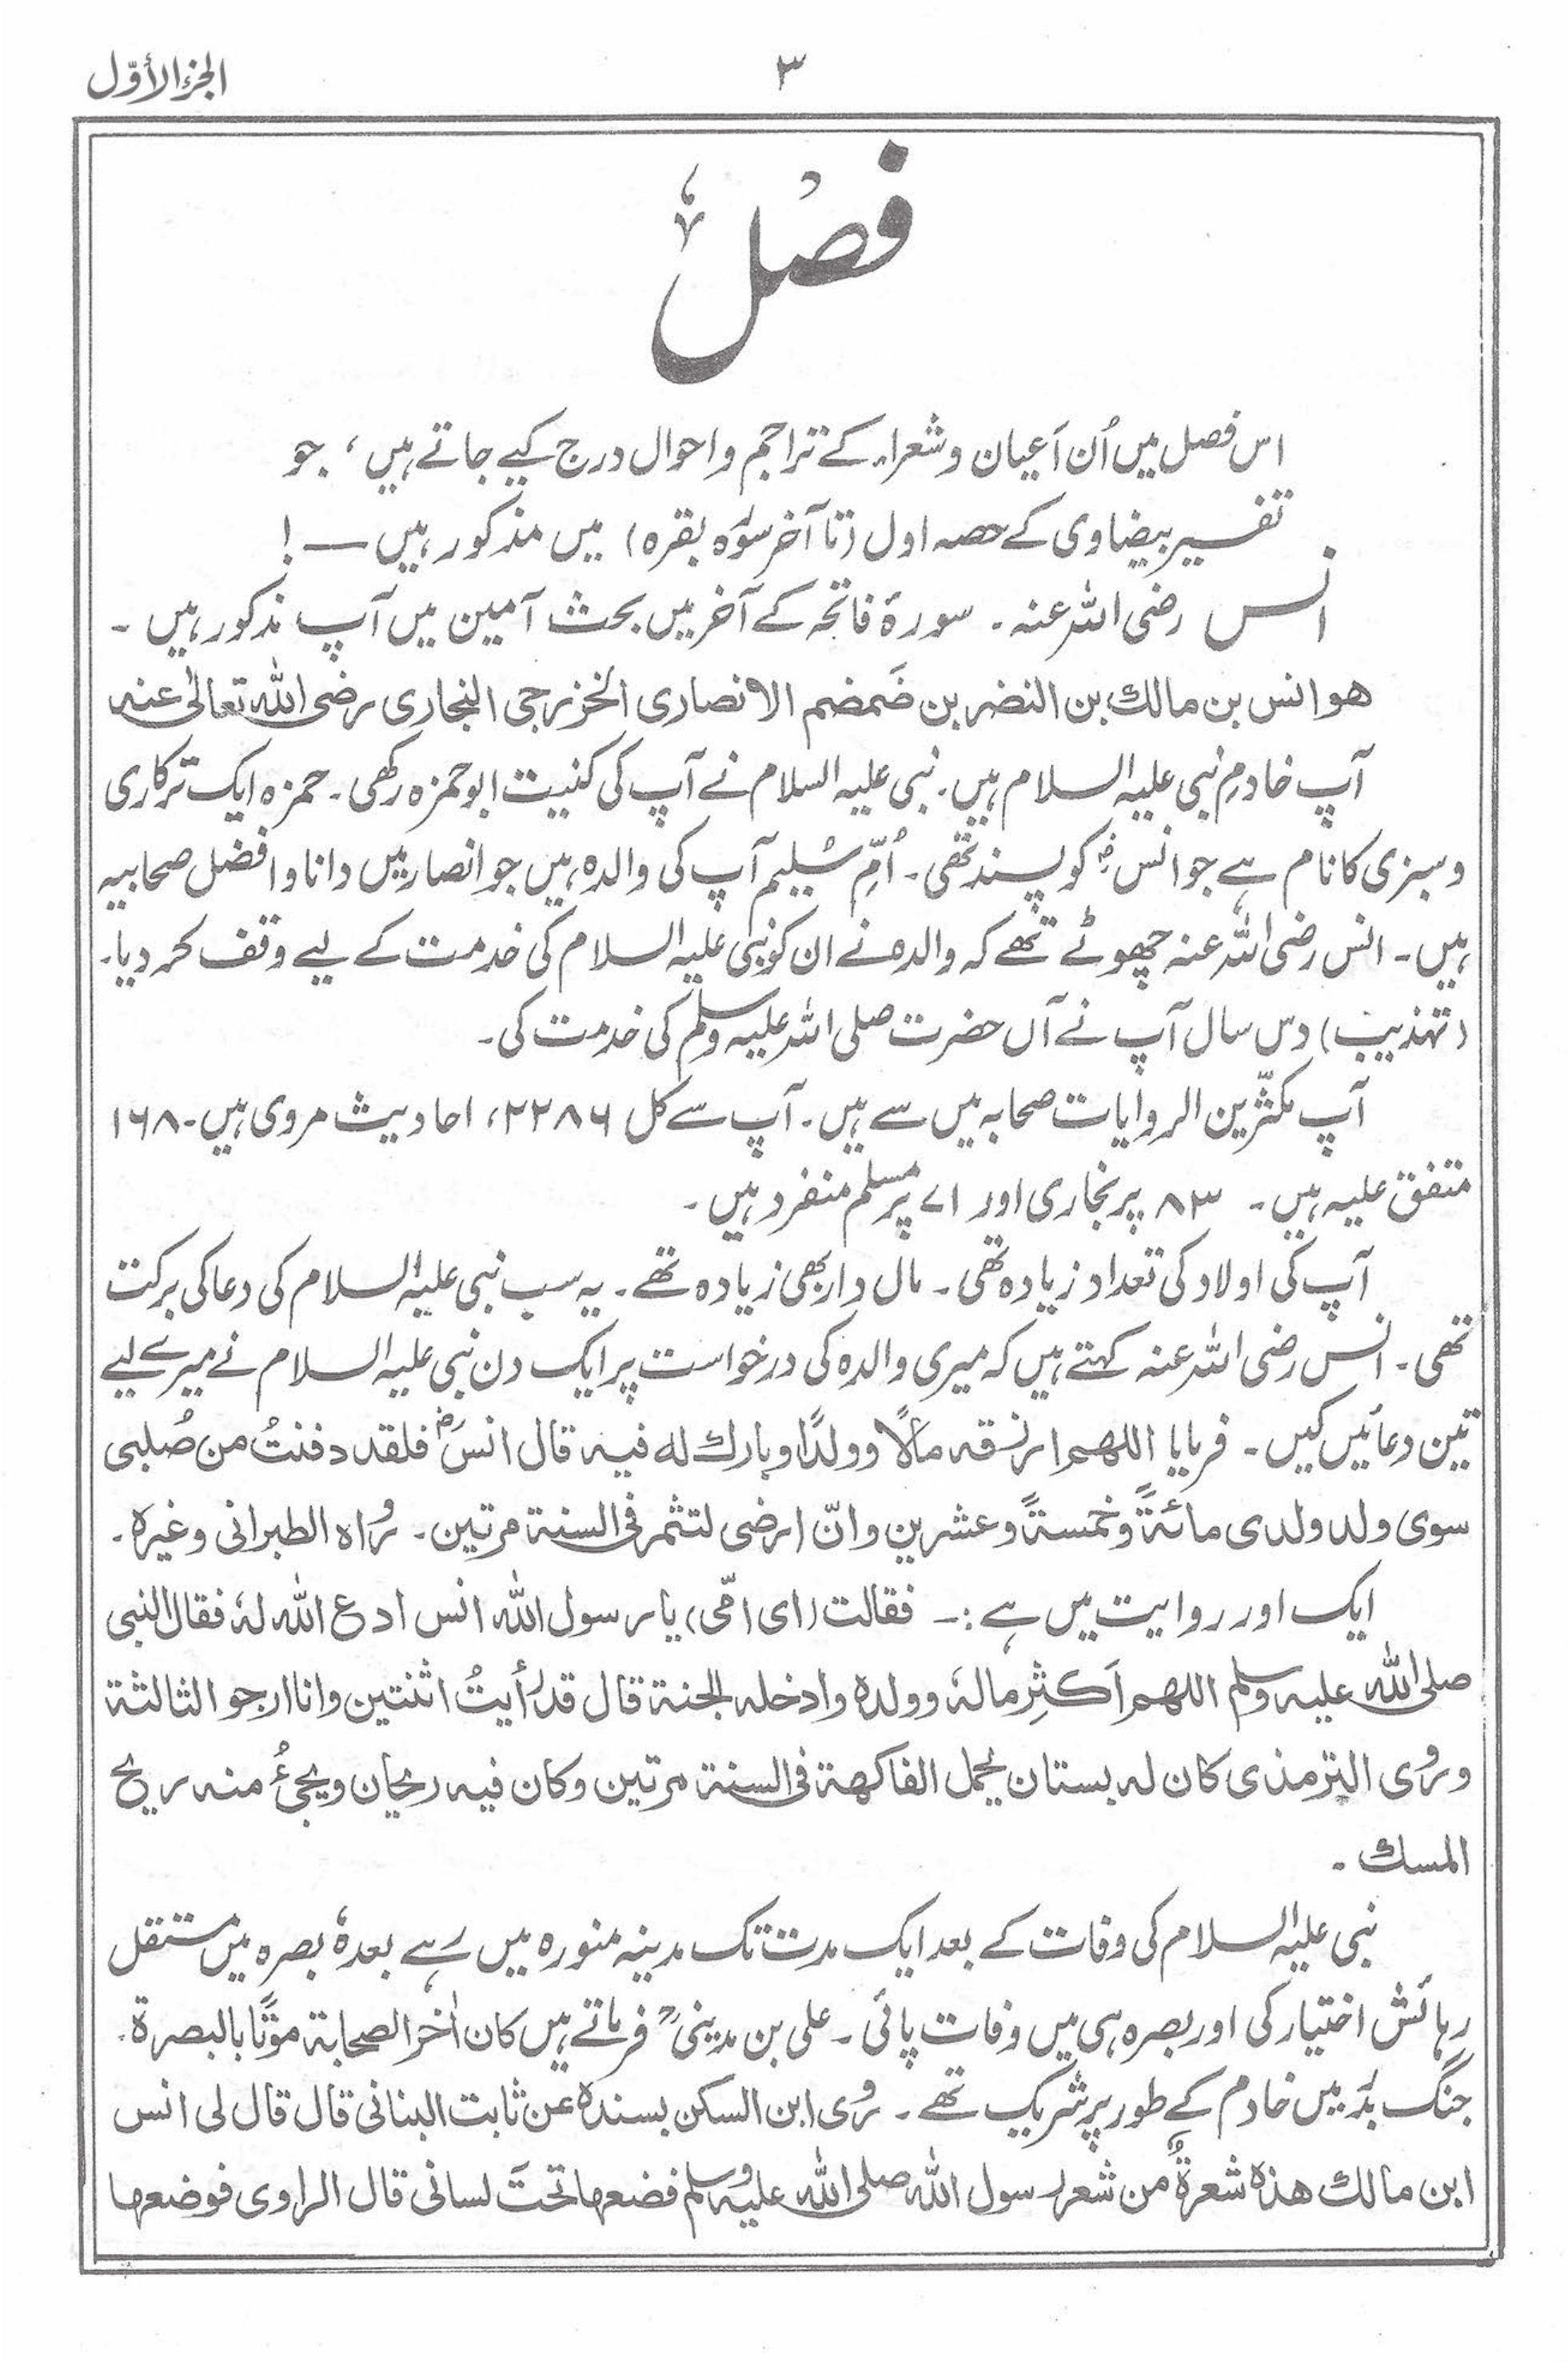 الجزء الأوّل
۳
فصل
اس فصل میں اُن اَعیان و شعراء کے تراجم و احوال درج کیے جاتے ہیں ، جو
تفسیر بیضاوی کے حصہ اول (تا آخر سورہ بقرہ) میں مذکور ہیں — !
انس رضی اللہ عنہ ۔ سورۂ فاتحہ کے آخر میں بحث آمین میں آپ مذکور ہیں ۔
هو انس بن مالك بن النضر بن ضَمضم الانصاری الخزرجی النجاری رضی اللہ تعالیٰ عنہ
آپ خادمِ نبی علیہ السلام ہیں ۔ نبی علیہ السلام نے آپ کی کنیت ابو حمزہ رکھی ۔ حمزہ ایک ترکاری
و سبزی کا نام ہے جو انسؓ کو پسند تھی ۔ اُمِّ سُلیم آپ کی والدہ ہیں جو انصار میں دانا و افضل صحابیہ
ہیں ۔ انس رضی اللہ عنہ چھوٹے تھے کہ والدہ نے ان کو نبی علیہ السلام کی خدمت کے لیے وقف کر دیا ۔
(تہذیب) دس سال آپ نے آں حضرت صلی اللہ علیہ وسلم کی خدمت کی ۔
آپ مکثّرین الروایات صحابہ میں سے ہیں ۔ آپ سے کل ۲۲۸۶، احادیث مروی ہیں ۔ ۱۶۸
متفق علیہ ہیں ۔ ۸۳ پر بخاری اور ۷۱ پر مسلم منفرد ہیں ۔
آپ کی اولاد کی تعداد زیادہ تھی ۔ مال دار بھی زیادہ تھے ۔ یہ سب نبی علیہ السلام کی دعا کی برکت
تھی ۔ انس رضی اللہ عنہ کہتے ہیں کہ میری والدہ کی درخواست پر ایک دن نبی علیہ السلام نے میرے لیے
تین دعائیں کیں ۔ فرمایا اللهم ارزقه مالًا وولدًا وبارك له فيه قال انسؓ فلقد دفنتُ من صُلبی
سوی ولد ولدی مائةً وخمسةً وعشرين وانّ ارضی لتثمر فی السنة مرتين ۔ رواہ الطبرانی وغیرہ ۔
ایک اور روایت میں ہے :۔ فقالت (ای امّی) یا رسول اللہ انس ادع اللہ لہٗ فقال النبی
صلی اللہ علیہ وسلم اللهم اَكثِر مالهٗ وولده وادخله الجنة قال قد رأيتُ اثنتين وانا ارجو الثالثة
وروی الترمذی کان له بستان یحمل الفاكهة فی السنة مرتين وكان فيه ريحان ويجئُ منه ريح
المسك ۔
نبی علیہ السلام کی وفات کے بعد ایک مدت تک مدینہ منورہ میں رہے بعدہٗ بصرہ میں مستقل
رہائش اختیار کی اور بصرہ ہی میں وفات پائی ۔ علی بن مدینیؒ فرماتے ہیں کان اٰخر الصحابة موتًا بالبصرة ۔
جنگ بدر میں خادم کے طور پر شریک تھے ۔ روی ابن السكن بسنده عن ثابت البنانی قال قال لی انس
ابن مالك هذه شعرةٌ من شعر رسول اللہ صلی اللہ علیہ وسلم فضعها تحتَ لسانی قال الراوی فوضعها